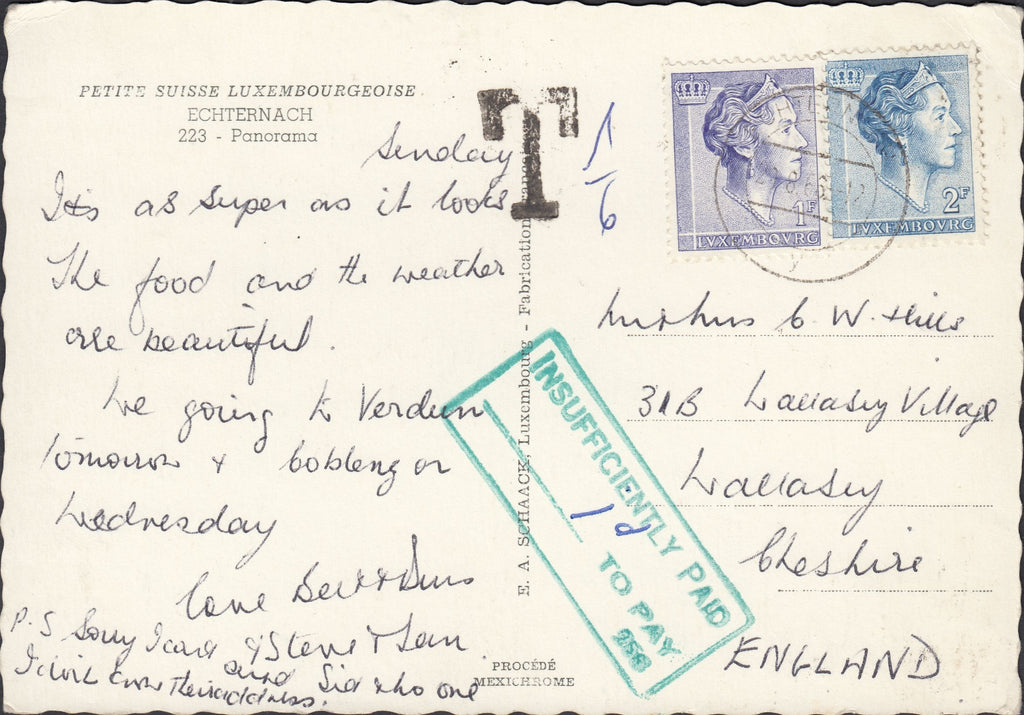 PETITE SUISSE LUXEMBOURGEOISE
ECHTERNACH
223 - Panorama
Sunday
Its as super as it looks
The food and the weather
are beautiful.
We going to Verdun
tomorrow & Cobleng on
Wednesday
love Bert &
P.S Sorry I
& Steve &
and Sid who one
I will know their address.
T
1/6
E. A. SCHAACK, Luxembourg - Fabrication
PROCÉDÉ
MEXICHROME
1F
LVXEMBOVRG
2F
LVXEMBOVRG
INSUFFICIENTLY PAID
1d
TO PAY
Mr & Mrs C. W. Hills
31B Wallasey Village
Wallasey
Cheshire
ENGLAND